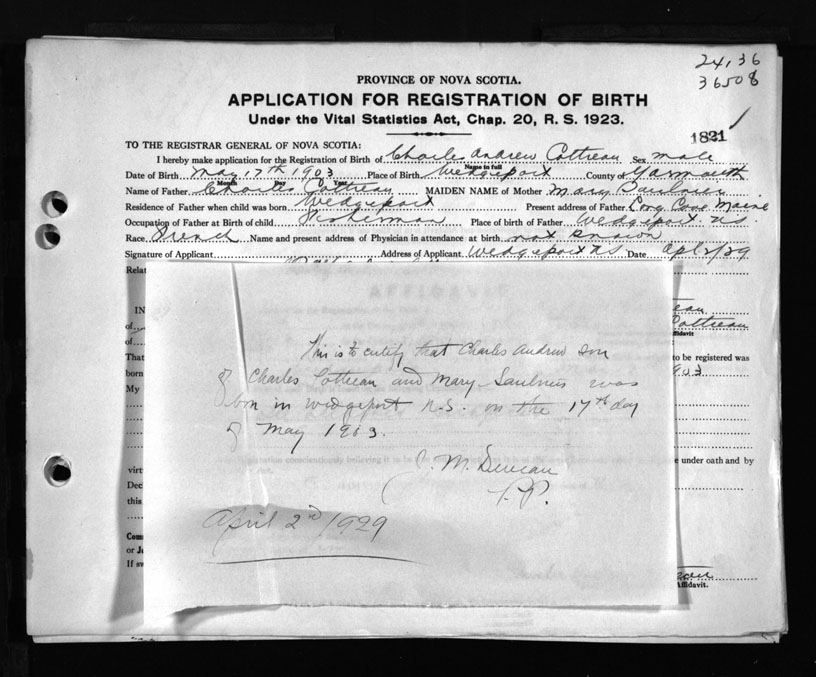 24,36
36508
PROVINCE OF NOVA SCOTIA.
APPLICATION FOR REGISTRATION OF BIRTH
Under the Vital Statistics Act, Chap. 20, R. S. 1923.
1821
TO THE REGISTRAR GENERAL OF NOVA SCOTIA:
I hereby make application for the Registration of Birth of Charles Andrew Cottreau Sex male
Name in full
Date of Birth May 17th 1903 Place of Birth Wedgeport County of Yarmouth
Month Day Year
Name of Father Charles Cottreau MAIDEN NAME of Mother Mary Saulnier
Residence of Father when child was born Wedgeport Present address of Father Long Cove Maine
Occupation of Father at Birth of child Fisherman Place of birth of Father Wedgeport N.S.
Race French Name and present address of Physician in attendance at birth not known
Signature of Applicant Address of Applicant Wedgeport N.S. Date Apl 2/29
Relat
AFFIDAVIT
IN
of
of
ffidavit
That to be registered was
born 903
My
This is to certify that Charles Andrew son
of Charles Cottreau and Mary Saulnier was
born in Wedgeport N.S. on the 17th day
of May 1903.
P.P.
April 2nd 1929
virt e under oath and by
Decl
this
Com
or Ju
If sw
Affidavit.